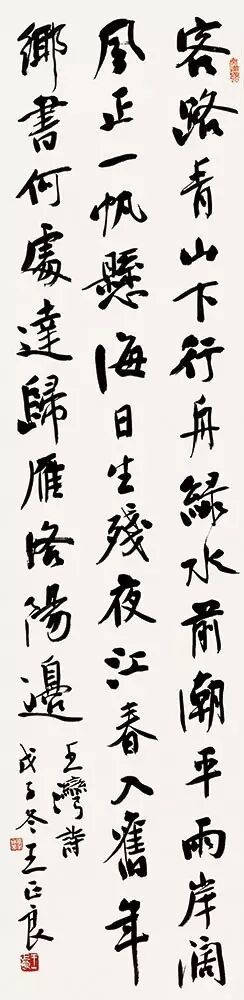 客路青山下行舟綠水前潮平兩岸闊
風正一帆懸海日生殘夜江春入舊年
鄉書何處達歸雁洛陽邊
王灣詩
戊子冬王正良